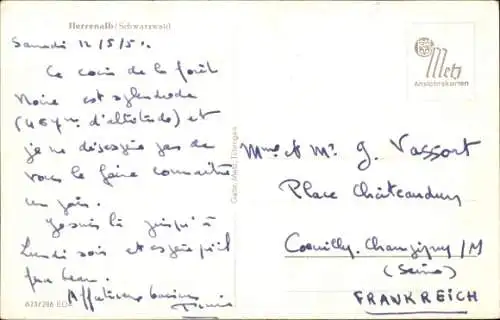 Herrenalb (Schwarzwald)
Samedi 12/5/5
Ce coin de la forêt
Noire est splendide
(
d'altitude) et
je ne désespère pas de
vous le faire connaître
un jour.
Je suis là jusqu'à
Lundi soir et espère qu'il
fera beau.
Affectueux baisers
Gebr. Metz, Tübingen
Metz
Ansichtskarten
Mme et Mr. G. Vassort
Place Châteaudun
Champigny /M
(Seine)
FRANKREICH